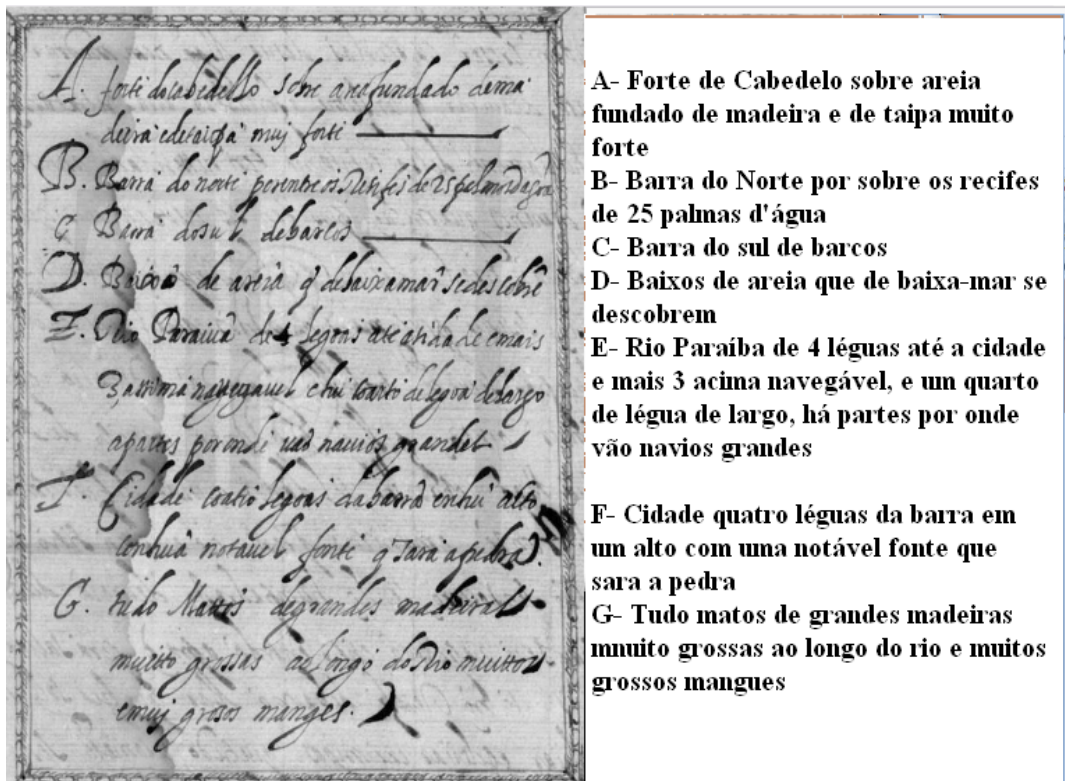 A. forte do cabedello sobre area fundado de ma
deira e de taipa muj forte
B. Barra do norte per entre os Resifes de 25 palmos dagoa
C Barra do sul de barcos
D. Baixos de areia q debaixamar se descobrẽ
E. Rio Paraiva de 4 legoas até a cidade e mais
3 assima navegavel e hũ coarto de legoa de largo
a partes por onde vaõ navios grandes
F. Cidade coatro legoas da barra en hũ alto
con huã notavel fonte q sara a pedra
G. tudo Mattos de grandes madeiras
muitto grossas ao longo do Rio muittos
e muj grosos manges.
A- Forte de Cabedelo sobre areia
fundado de madeira e de taipa muito
forte
B- Barra do Norte por sobre os recifes
de 25 palmas d'água
C- Barra do sul de barcos
D- Baixos de areia que de baixa-mar se
descobrem
E- Rio Paraíba de 4 léguas até a cidade
e mais 3 acima navegável, e um quarto
de légua de largo, há partes por onde
vão navios grandes
F- Cidade quatro léguas da barra em
un alto com uma notável fonte que
sara a pedra
G- Tudo matos de grandes madeiras
mnuito grossas ao longo do rio e muitos
grossos mangues